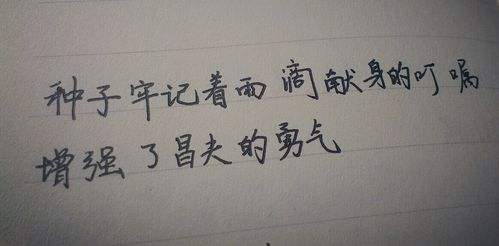 种子牢记着雨滴献身的叮嘱
增强了冒夫的勇气